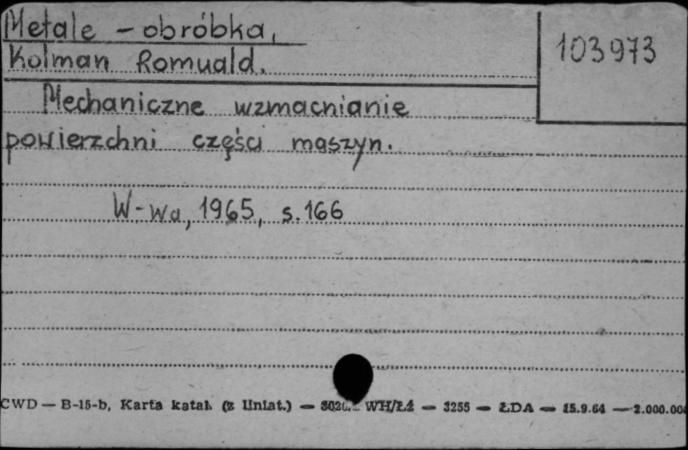 Metale – obróbka,
103973
Kolman Romuald.
Mechaniczne wzmacnianie
powierzchni części maszyn.
W-wa, 1965, s. 166
CWD — B-15-b, Karta katal. (z liniat.) — WH/Ł4 — 3255 — ŁDA — 15.9.64 — 2.000.000